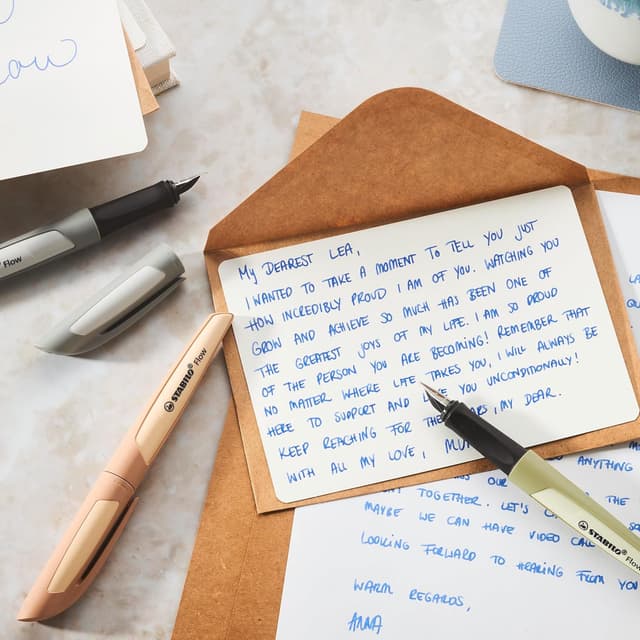 ow
Flow
STABILO® Flow
MY DEAREST LEA,
I WANTED TO TAKE A MOMENT TO TELL YOU JUST
HOW INCREDIBLY PROUD I AM OF YOU. WATCHING YOU
GROW AND ACHIEVE SO MUCH HAS BEEN ONE OF
THE GREATEST JOYS OF MY LIFE. I AM SO PROUD
OF THE PERSON YOU ARE BECOMING! REMEMBER THAT
NO MATTER WHERE LIFE TAKES YOU, I WILL ALWAYS BE
HERE TO SUPPORT AND YOU UNCONDITIONALLY!
KEEP REACHING FOR THE , MY DEAR.
WITH ALL MY LOVE,
STABILO® Flow
OUR ANYTHING
TOGETHER. LET'S THE
MAYBE WE CAN HAVE VIDEO
LOOKING FORWARD TO HEARING FROM YOU
WARM REGARDS,
ANNA